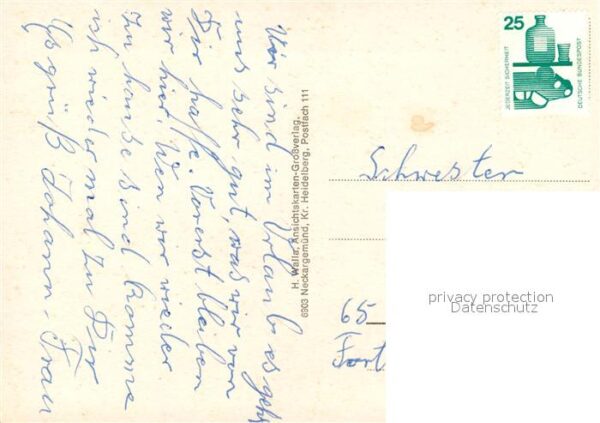 Wir sind im Urlaub es geht
uns sehr gut was wir von
Dir hoffe. Vorerst bleiben
wir hier. Wen wir wieder
zu hause sind komme
ich wieder mal zu Dir
Es grüß Johann-Frau
H. Walla, Ansichtskarten-Großverlag,
6903 Neckargemünd, Kr. Heidelberg, Postfach 111
25
JEDERZEIT SICHERHEIT
DEUTSCHE BUNDESPOST
Schwester
65
privacy protection
Datenschutz